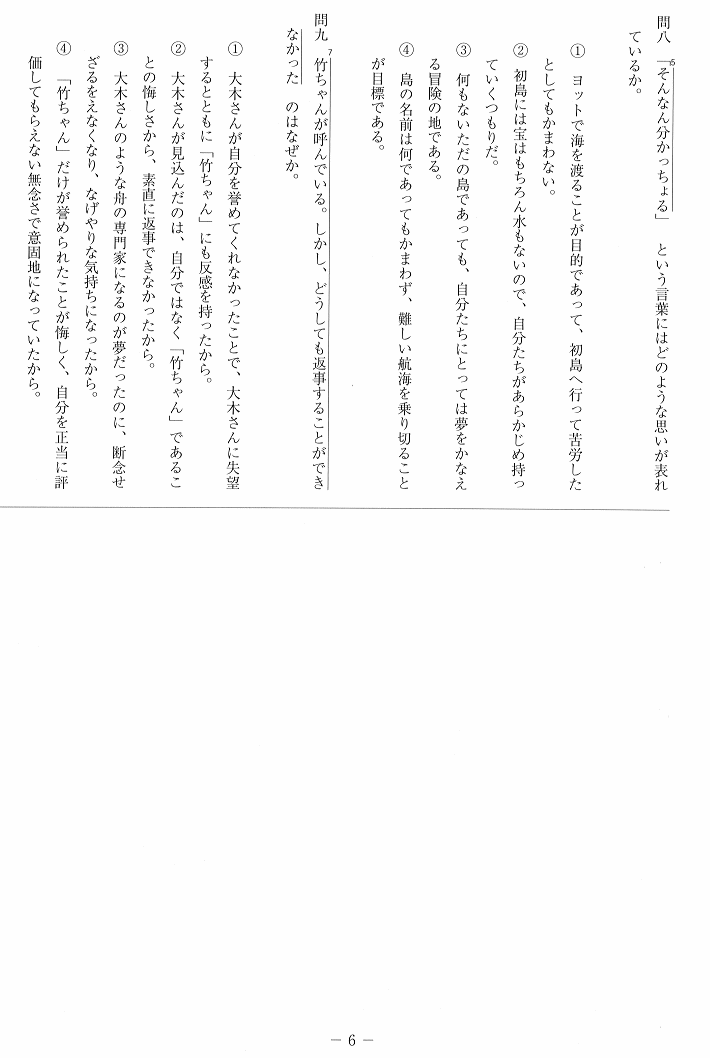 問八　6「そんなん分かっちょる」　という言葉にはどのような思いが表れ
ているか。
①　ヨットで海を渡ることが目的であって、初島へ行って苦労した
としてもかまわない。
②　初島には宝はもちろん水もないので、自分たちがあらかじめ持っ
ていくつもりだ。
③　何もないただの島であっても、自分たちにとっては夢をかなえ
る冒険の地である。
④　島の名前は何であってもかまわず、難しい航海を乗り切ること
が目標である。
問九　7竹ちゃんが呼んでいる。しかし、どうしても返事することができ
なかった　のはなぜか。
①　大木さんが自分を誉めてくれなかったことで、大木さんに失望
するとともに「竹ちゃん」にも反感を持ったから。
②　大木さんが見込んだのは、自分ではなく「竹ちゃん」であるこ
との悔しさから、素直に返事できなかったから。
③　大木さんのような舟の専門家になるのが夢だったのに、断念せ
ざるをえなくなり、なげやりな気持ちになったから。
④　「竹ちゃん」だけが誉められたことが悔しく、自分を正当に評
価してもらえない無念さで意固地になっていたから。
－ 6 －